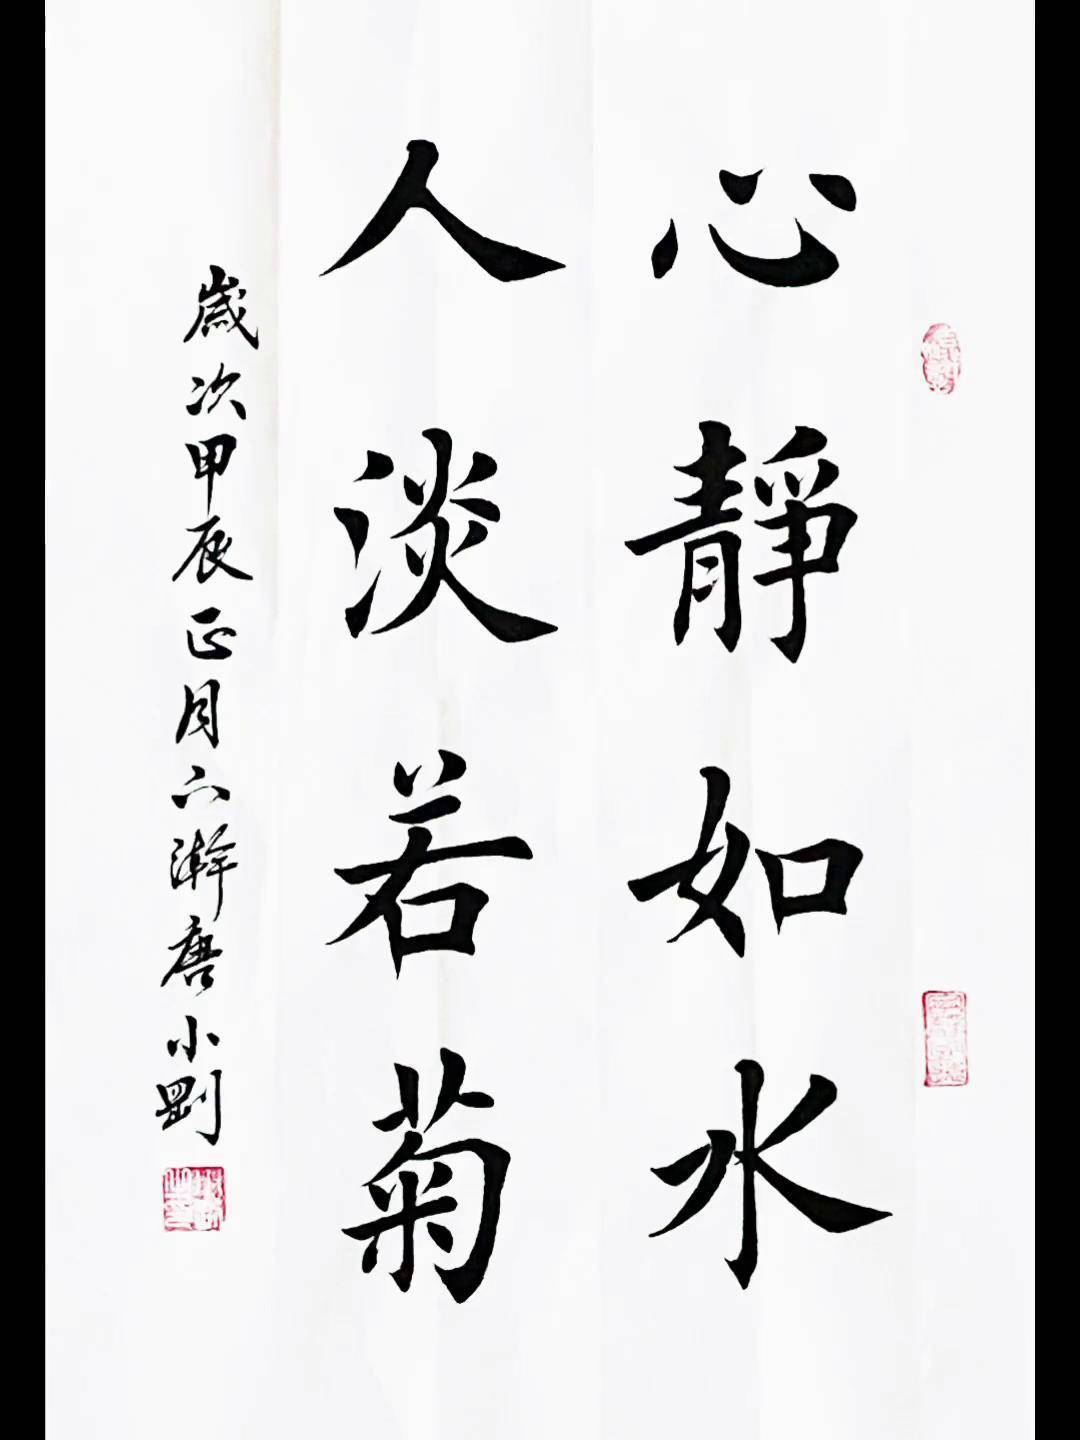 心靜如水
人淡若菊
歲次甲辰正月六澣唐小剛